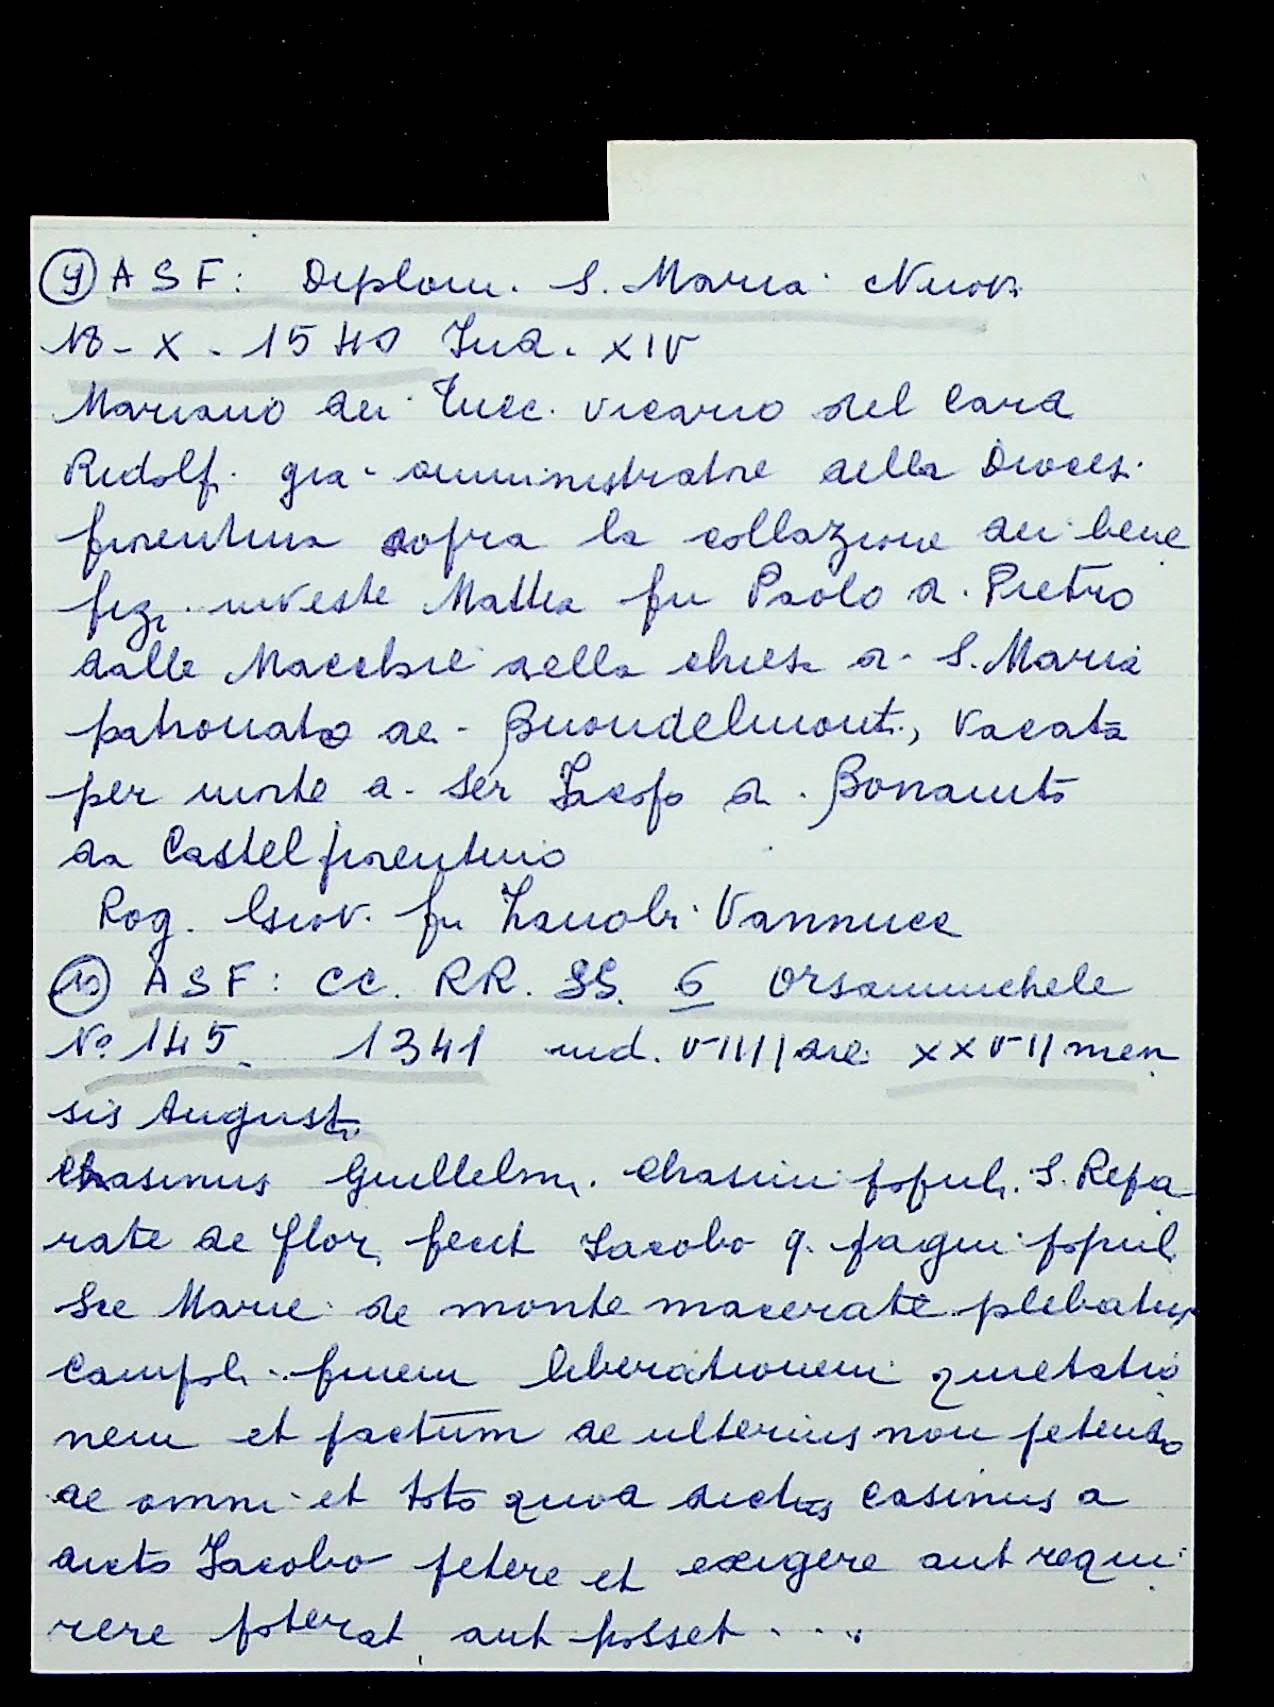 ⑨ ASF: Diplom. S. Maria Nuova
18-X-1540 Ind. XIV
Mariano dei Tucc. vicario del Card
Ridolfi già amministratore della Diocesi
fiorentina sopra la collazione dei bene
fizi investe Mattia fu Paolo di Pietro
dalle Macchie della chiesa di S. Maria
patronato dei Buondelmonti, vacata
per morte di ser Jacopo di Bonaiuto
da Castelfiorentino
Rog. Giov. fu Zanobi Vannucc
⑩ ASF: CC. RR. SS. 6 Orsanmichele
No 145. 1341 ind. VIIII die XXVII men
sis Augusti
Chasinus Guillelmi Chasini popul. S. Repa
rate de Flor. fecit Jacobo q. populi
Sce Marie de monte macerate plebatus
Campoli finem liberationem quietatio
nem et pactum de ulterius non petendo
de omni et toto quod dictus Casinus a
dicto Jacobo petere et exigere aut requi
rere poterat aut posset . . . .